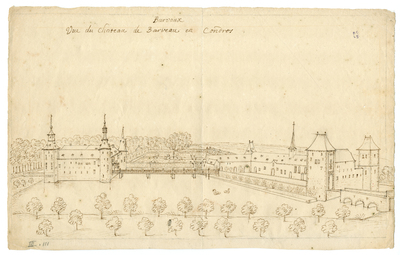 Barvaux
Vue du Chateau de Barveau en Condros